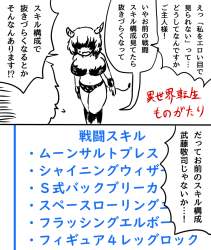 えっ「私をエロい目で
見られない」って…
どうしてなんですか
ご主人様！
いやお前の戦闘
スキル構成見てたら
抜きづらくなって
スキル構成で
抜きづらくなるとか
そんなんあります!?
異世界転生
ものがたり
だってお前のスキル構成
武藤敬司じゃないか…！
戦闘スキル
・ムーンサルトプレス
・シャイニングウィザ
・S式バックブリーカ
・スペースローリング
・フラッシングエルボー
・フィギュア4レッグロック